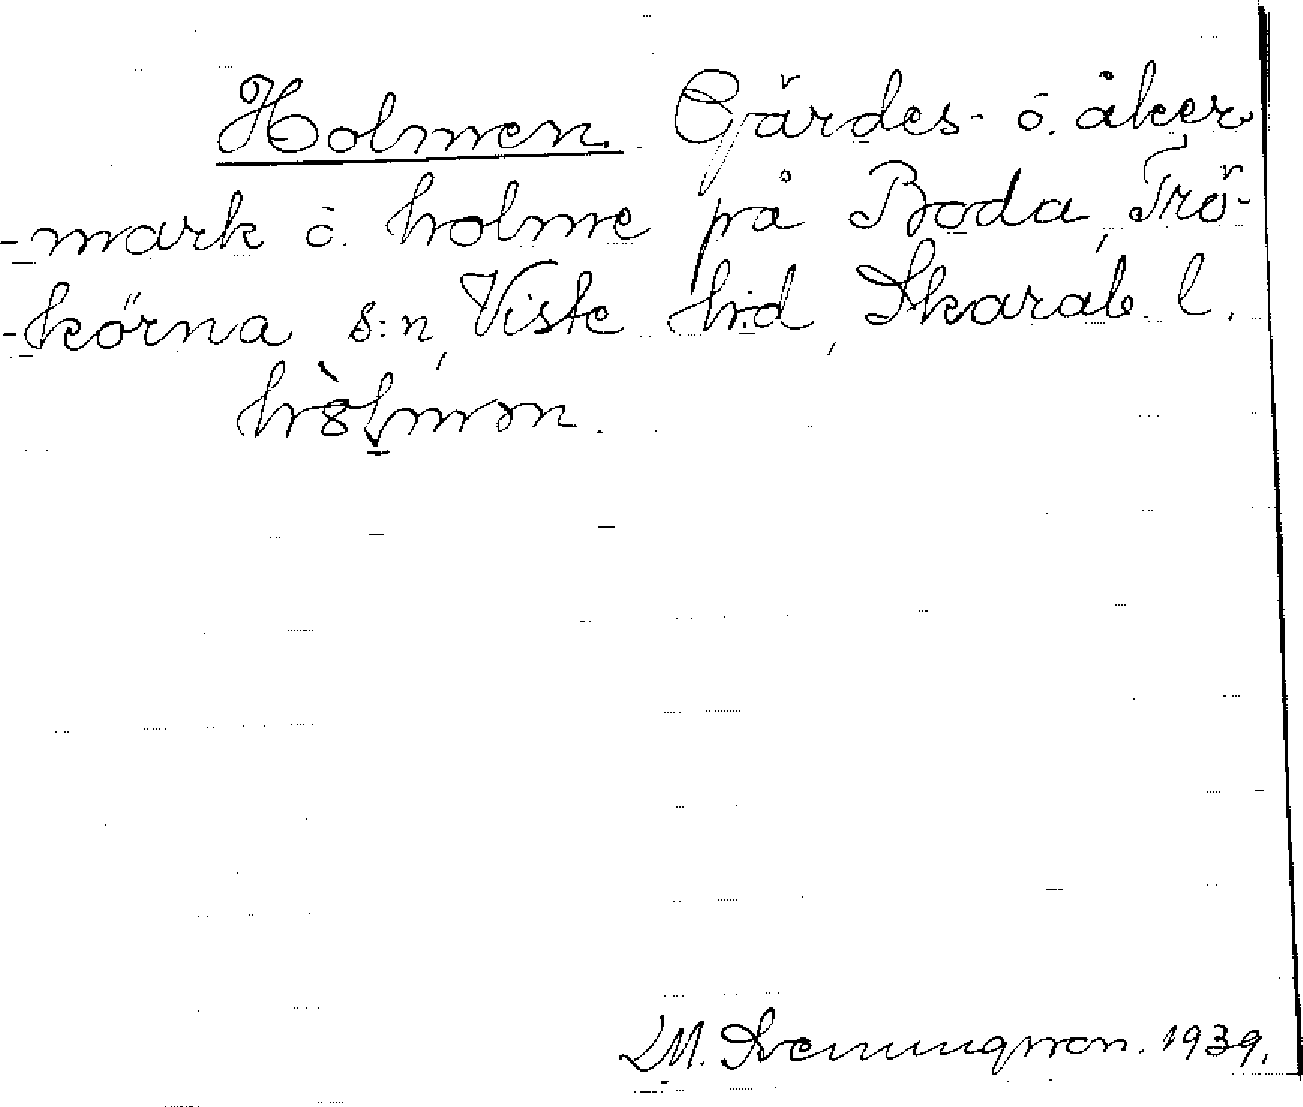 Holmen. Gärdes- o. åker
-mark o. holme på Boda, Trö-
-körna s:n, Viste h:d, Skarab. l.
L M. Svenungsson. 1939.